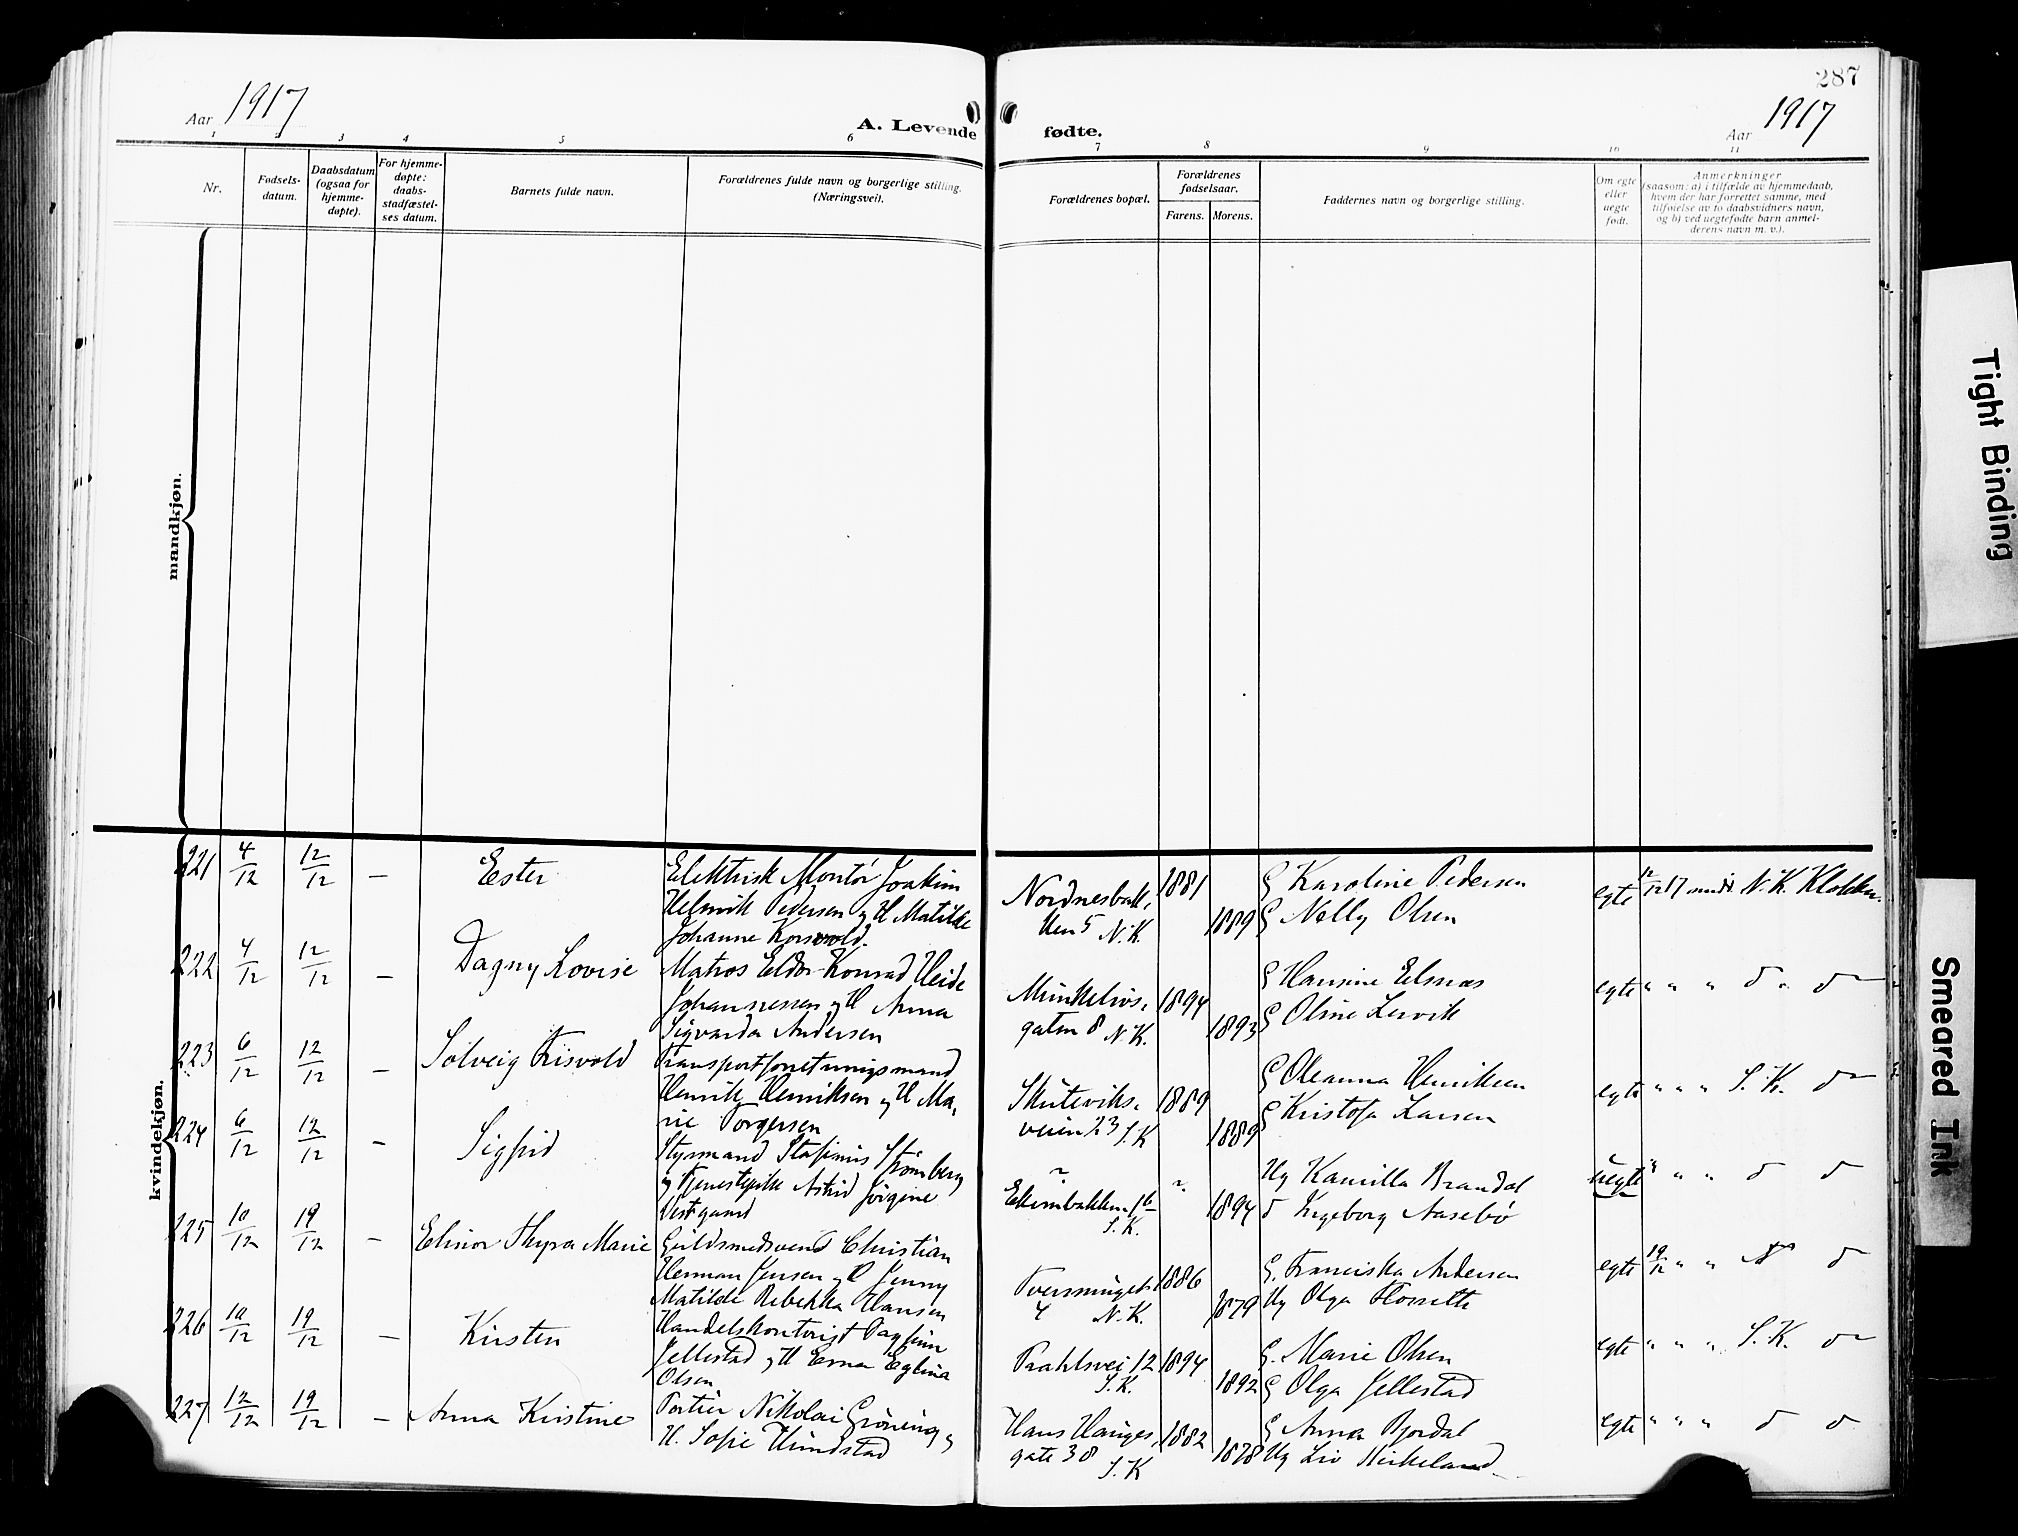 287
Aar 1917
A. Levende fødte.
Aar 1917
1 2 3 4 5 6 7 8 9 10 11
Nr.
Fødsels-
datum.
Daabsdatum
(ogsaa for
hjemme-
døpte).
For hjemme-
døpte:
daabs-
stadfæstel-
ses datum.
Barnets fulde navn.
Forældrenes fulde navn og borgerlige stilling.
(Næringsvei).
Forældrenes bopæl.
Forældrenes
fødselsaar.
Farens. Morens.
Faddernes navn og borgerlige stilling.
Om egte
eller
uegte
født.
Anmerkninger
(saasom: a) i tilfælde av hjemmedaab,
hvem der har forrettet samme, med
tilføielse av to daabsvidners navn,
og b) ved uegtefødte barn anmel-
derens navn m. v.).
mandkjøn.
kvindekjøn.
221 4/12 12/12 — Ester
Elektrisk Montör Joakim
Helmik Pedersen og H Matilde
Johanne Korsvold.
Nordnesbak-
ken 5 N.K.
1881 1889
G Karoline Pedersen
G Nelly Olsen
egte 12/12 17 N.K. Klokker.
222 4/12 12/12 — Dagny Lovise
Matros Eldor Konrad Heide
Johannessen og H Anna
Sigvarda Andersen
Munkelivs-
gaten 8 N.K.
1894 1893
G Hansine Eelsnæs
G Oline Lervik
egte " " " d " d
223 6/12 12/12 — Solveig Frisvold
Transportforretningsmand
Henrik Henriksen og H Ma-
rie Torgersen
Skuteviks-
veien 23 S.K
1889 1889
G Oleanna Henriksen
G Kristofa Larsen
egte " " " S.K. d
224 6/12 12/12 — Sigfrid
Styrmand Stefinius Strömberg
og Tjenestepike Astrid Jörgine
Vestgaard
~ 
16
S.K.
~ 1894
Ug Kamilla Brandal
d Ingeborg Aasebö
uegte " " " d d
225 10/12 19/12 — Elinor Thyra Marie
Guldsmedsvend Christian
Herman Jensen og H Jenny
Matilde Rebekka Hansen
4 N.K.
1886 1879
G. Franciska Andersen
Ug Olga
egte 19/12 " " N d
226 10/12 19/12 — Kirsten
Handelskontorist Dagfinn
Jellestad og H Erna Egline
Olsen
Prahlsvei 12
S.K.
1894 1892
G. Marie Olsen
G Olga Jellestad
egte " " " S.K. d
227 12/12 19/12 — Anna Kristine
Portier Nikolai Gröning og
H. Sofie Hundstad
Hans Hauges
gate 38
S.K
1882 1878
G Anna Bjordal
Ug Liv Kirkeland
egte " " " d d
Tight Binding
Smeared Ink